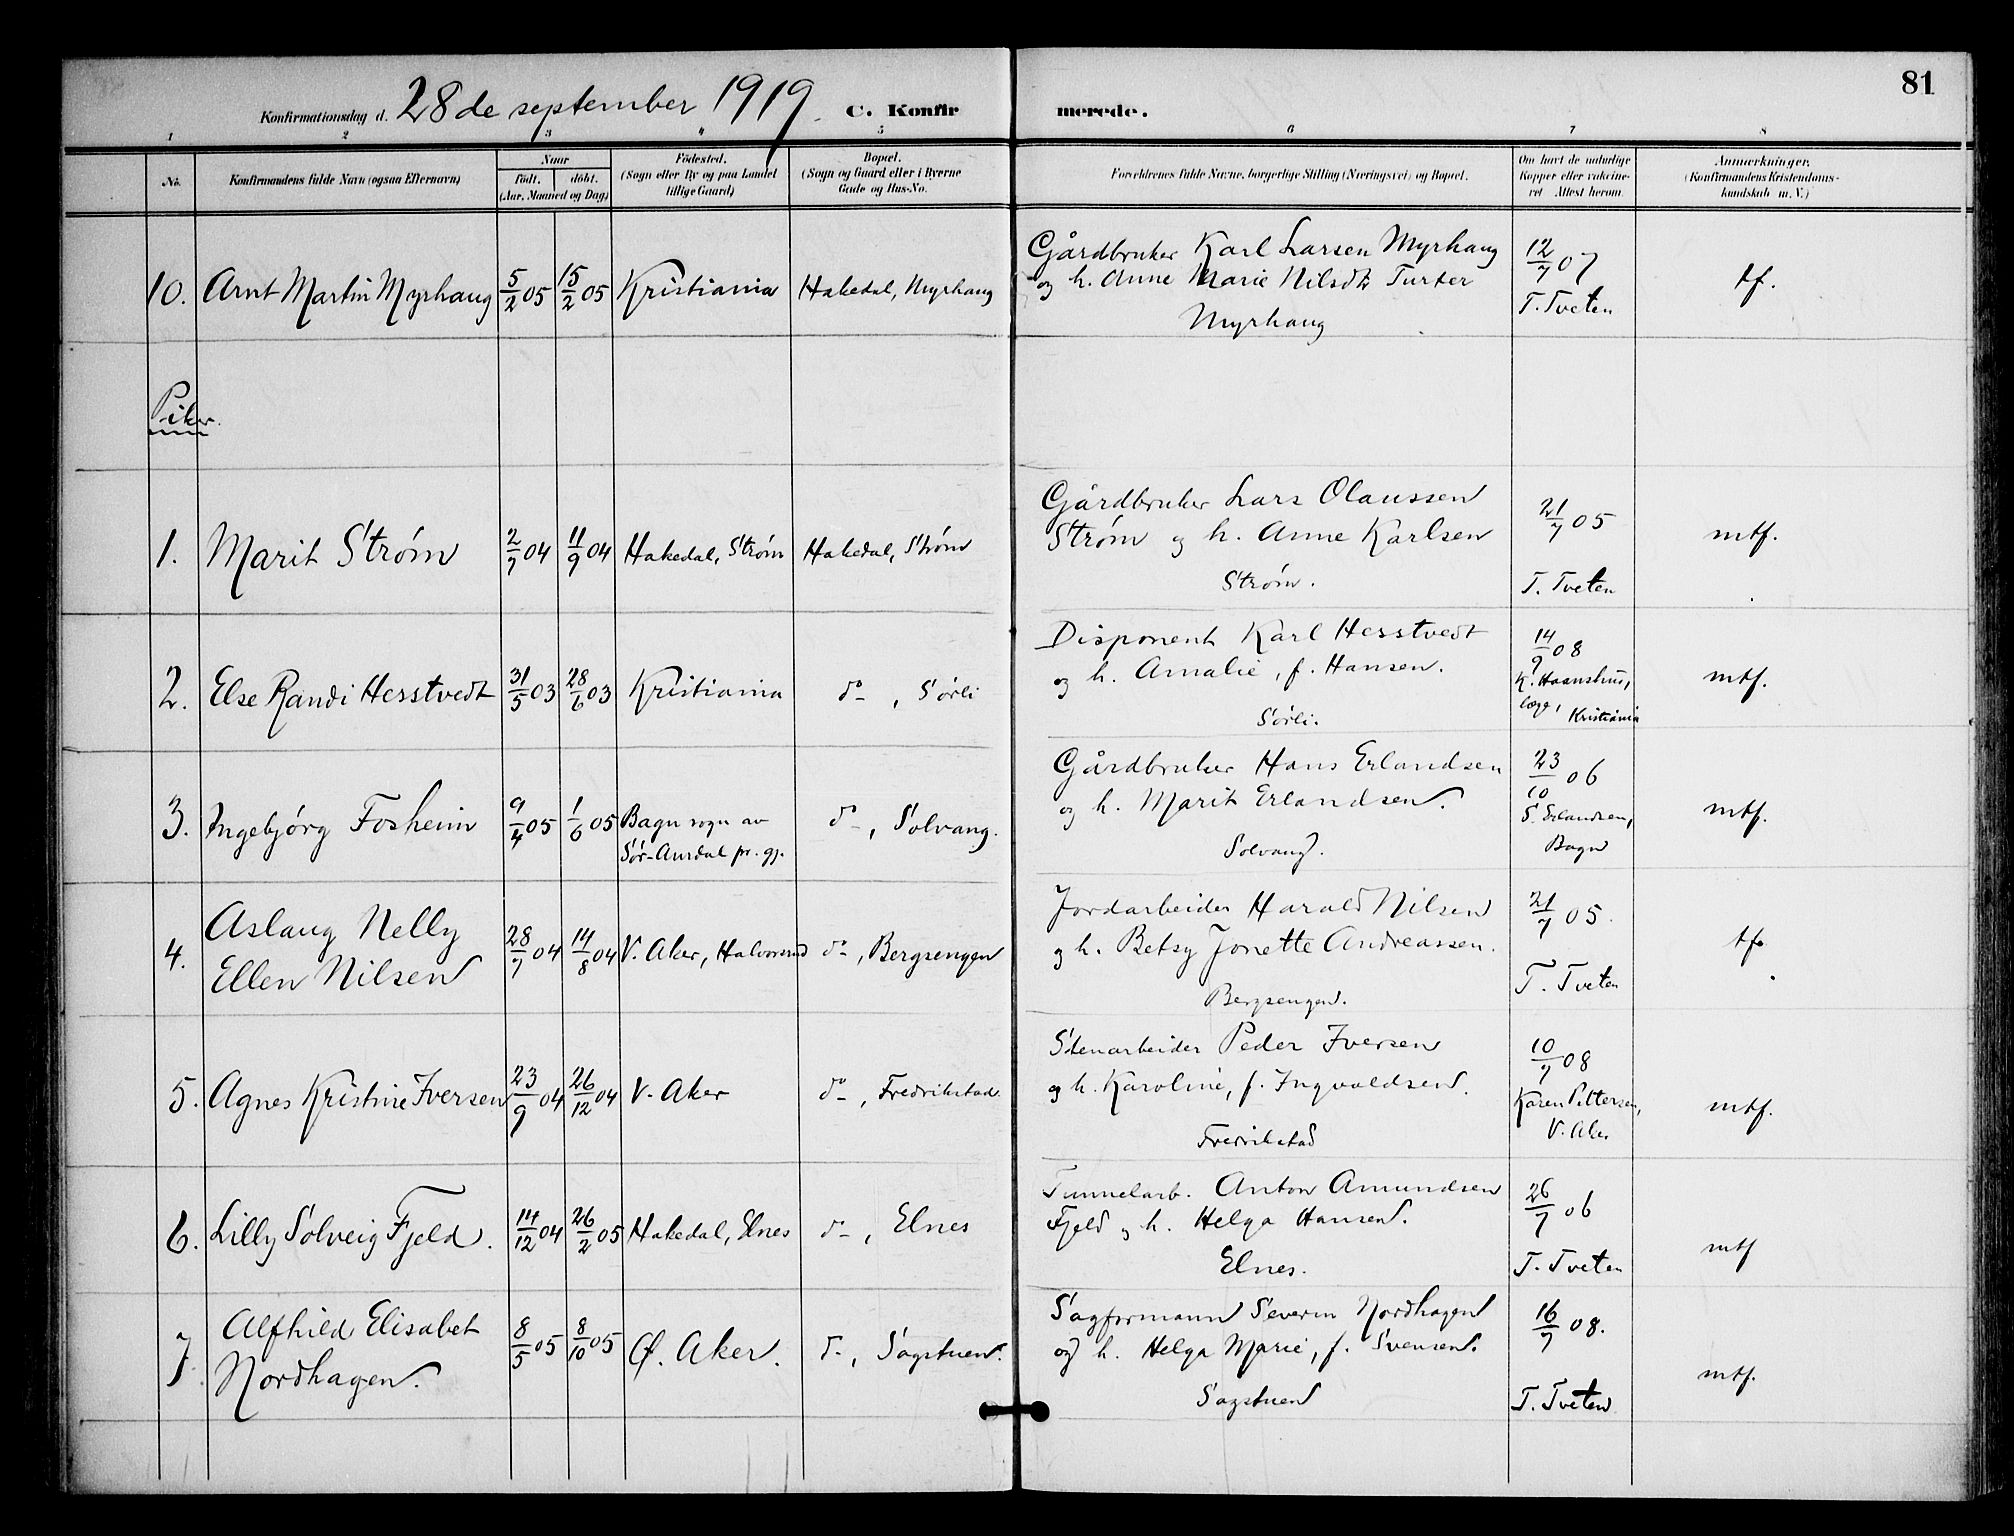 81
Konfirmationsdag d. 28de september 1919. C. Konfirmerede.
1 2 3 4 5 6 7 8
No.
Konfirmandens fulde Navn (ogsaa Efternavn)
Naar
födt. döbt.
(Aar, Maaned og Dag)
Födested.
(Sogn eller By og paa Landet
tillige Gaard)
Bopæl.
(Sogn og Gaard eller i Byerne
Gade og Hus-No.
Forældrenes fulde Navne, borgerlige Stilling (Næringsvei) og Bopæl.
Om havt de naturlige
Kopper eller vaccine-
ret Attest herom.
Anmærkninger.
(Konfirmandens Kristendoms-
kundskab m. V.)
10. Arnt Martin Myrhaug 5/2 05 15/2 05 Kristiania Hakedal, Myrhaug
Gårdbruker Karl Larsen Myrhaug
og h. Anne Marie Nilsdt. Turter
Myrhaug
12/7 07
T. Tveten
tf.
Piker.
1. Marit Strøm 2/7 04 11/9 04 Hakedal, Strøm Hakedal, Strøm
Gårdbruker Lars Olaussen
Strøm og h. Anne Karlsen
Strøm.
21/7 05
T. Tveten
mtf.
2. Else Randi Hesstvedt 31/5 03 28/6 03 Kristiania do- , Sørli
Disponent Karl Hesstvedt
og h. Amalie, f. Hansen.
Sørli.
14/9 08
K. Haanshus,
læge,
Kristiania
mtf.
3. Ingebjörg Fosheim 9/4 05 1/6 05 Bagn sogn av
Sör-Aurdal pr. gj.
do- , Solvang.
Gårdbruker Hans Erlandsen
og h. Marit Erlandsen.
Solvang.
23/10 06
S. Erlandsen,
Bagn
mtf.
4. Aslaug Nelly
Ellen Nilsen
28/7 04 14/8 04 V. Aker, Halvorsrud do- , Bergsengen
Jordarbeider Harald Nilsen
og h. Betsy Jonette Andreassen.
Bergsengen.
21/7 05.
T. Tveten
tf.
5. Agnes Kristine Iversen 23/9 04 26/12 04 V. Aker do- , Fredrikstad
Stenarbeider Peder Iversen
og h. Karoline, f. Ingvaldsen.
Fredrikstad
10/7 08
Karen Pettersen,
V. Aker
mtf.
6. Lilly Solveig Fjeld. 14/12 04 26/2 05 Hakedal, Elnes do- , Elnes
Tunnelarb. Anton Amundsen
Fjeld og h. Helga Hansen.
Elnes.
26/7 06
T. Tveten
mtf
7. Alfhild Elisabet
Nordhagen.
8/5 05 8/10 05 Ø. Aker. do- , Sagstuen.
Sagformann Severin Nordhagen
og h. Helga Marie, f. Svensen.
Sagstuen
16/7 08.
T. Tveten
mtf.